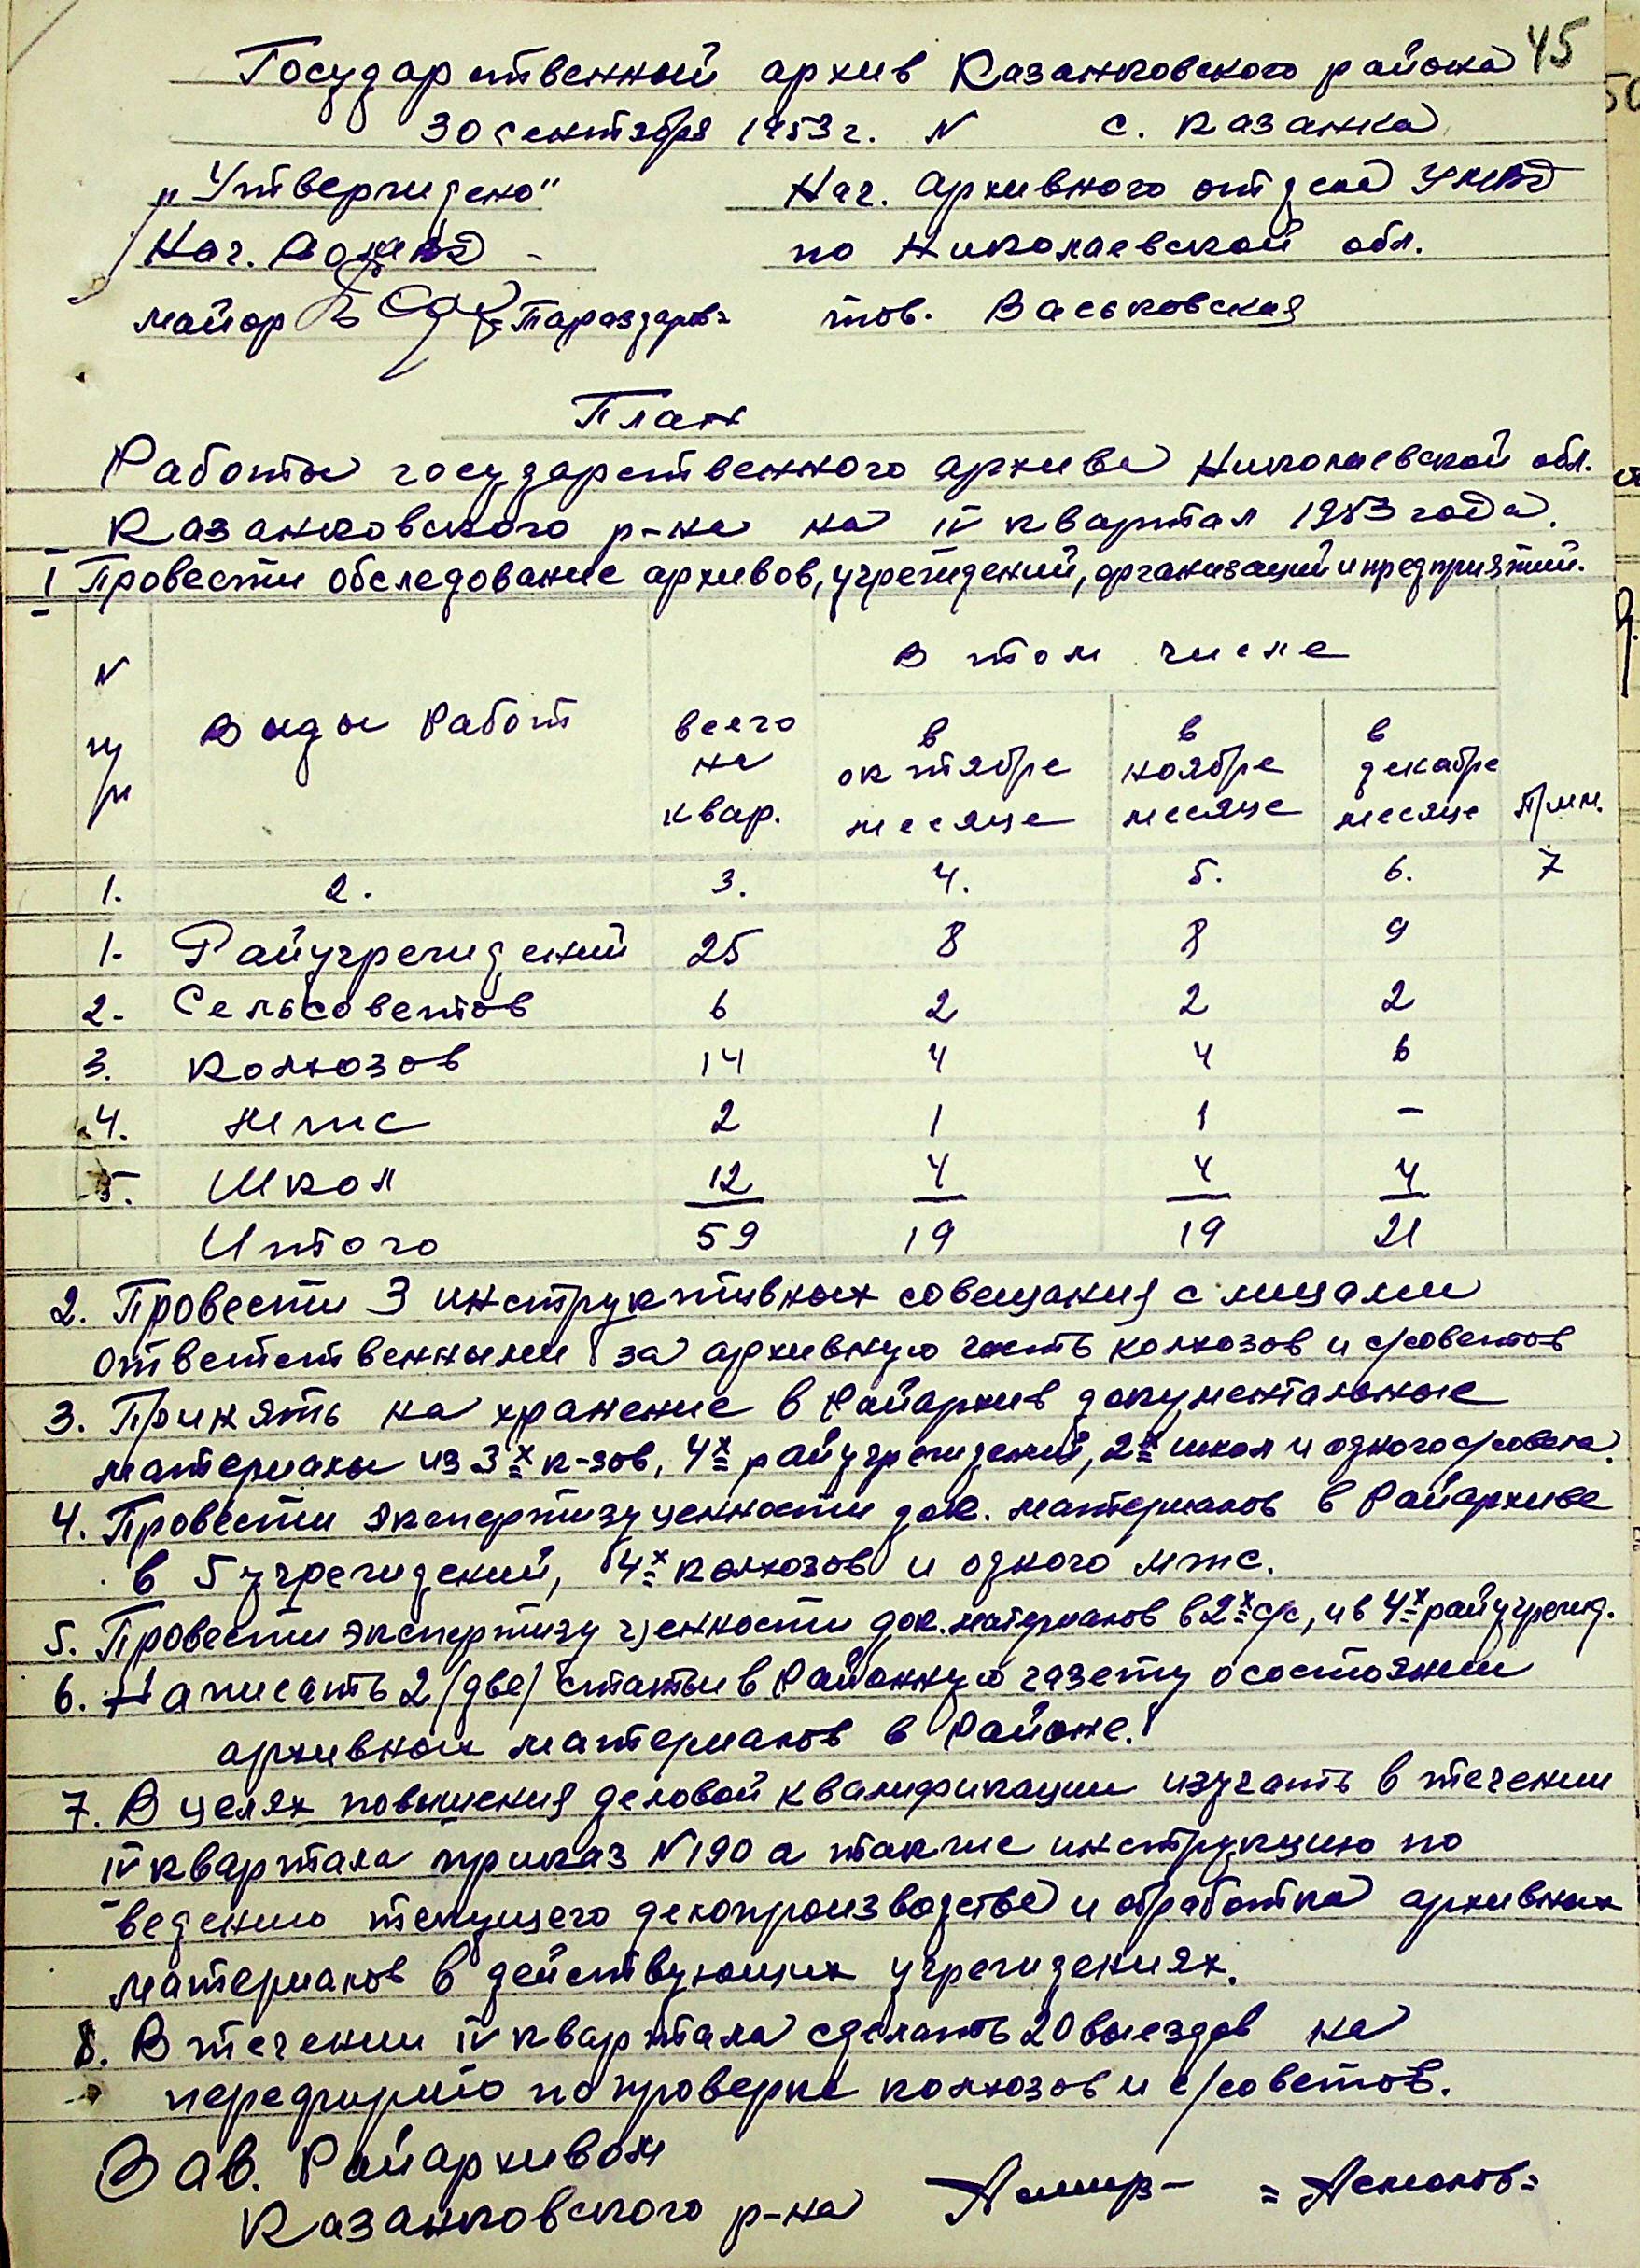 45
Государственный архив Казанковского района
30 сентября 1953 г. N с. Казанка
„Утверждено" Нач. Архивного отдела УМВД
Нач. РОМВД - по Николаевской обл.
майор тов. Васьковская
План
Работы государственного архива Николаевской обл.
Казанковского р-на на IV квартал 1953 года.
I Провести обследование архивов, учреждений, организаций и предприятий.
N п/п Виды Работ всего на квар. В том числе
в октябре месяце в ноябре месяце в декабре месяце Прим.
1. 2. 3. 4. 5. 6. 7
1. Райучреждений 25 8 8 9
2. Сельсоветов 6 2 2 2
3. Колхозов 14 4 4 6
4. МТС 2 1 1 –
5. Школ 12 4 4 4
Итого 59 19 19 21
2. Провести 3 инструктивных совещания с лицами
ответственными за архивную часть колхозов и с/советов
3. Принять на хранение в Райархив документальные
материалы из 3х к-зов, 4х райучреждений, 2х школ и одного с/совета.
4. Провести экспертизу ценности док. материалов в Райархиве
в 5 учреждений, 4х колхозов и одного мтс.
5. Провести экспертизу ценности док. материалов в 2х с/с, и в 4х райучрежд.
6. Написать 2 (две) статьи в Районную газету о состоянии
архивных материалов в Районе.
7. В целях повышения деловой квалификации изучать в течении
IV квартала приказ N190 а также инструкцию по
ведению текущего делопроизводства и обработка архивных
материалов в действующих учреждениях.
8. В течении IV квартала сделать 20 выездов на
переферию по проверке колхозов и с/советов.
Зав. Райархивом
Казанковского р-на